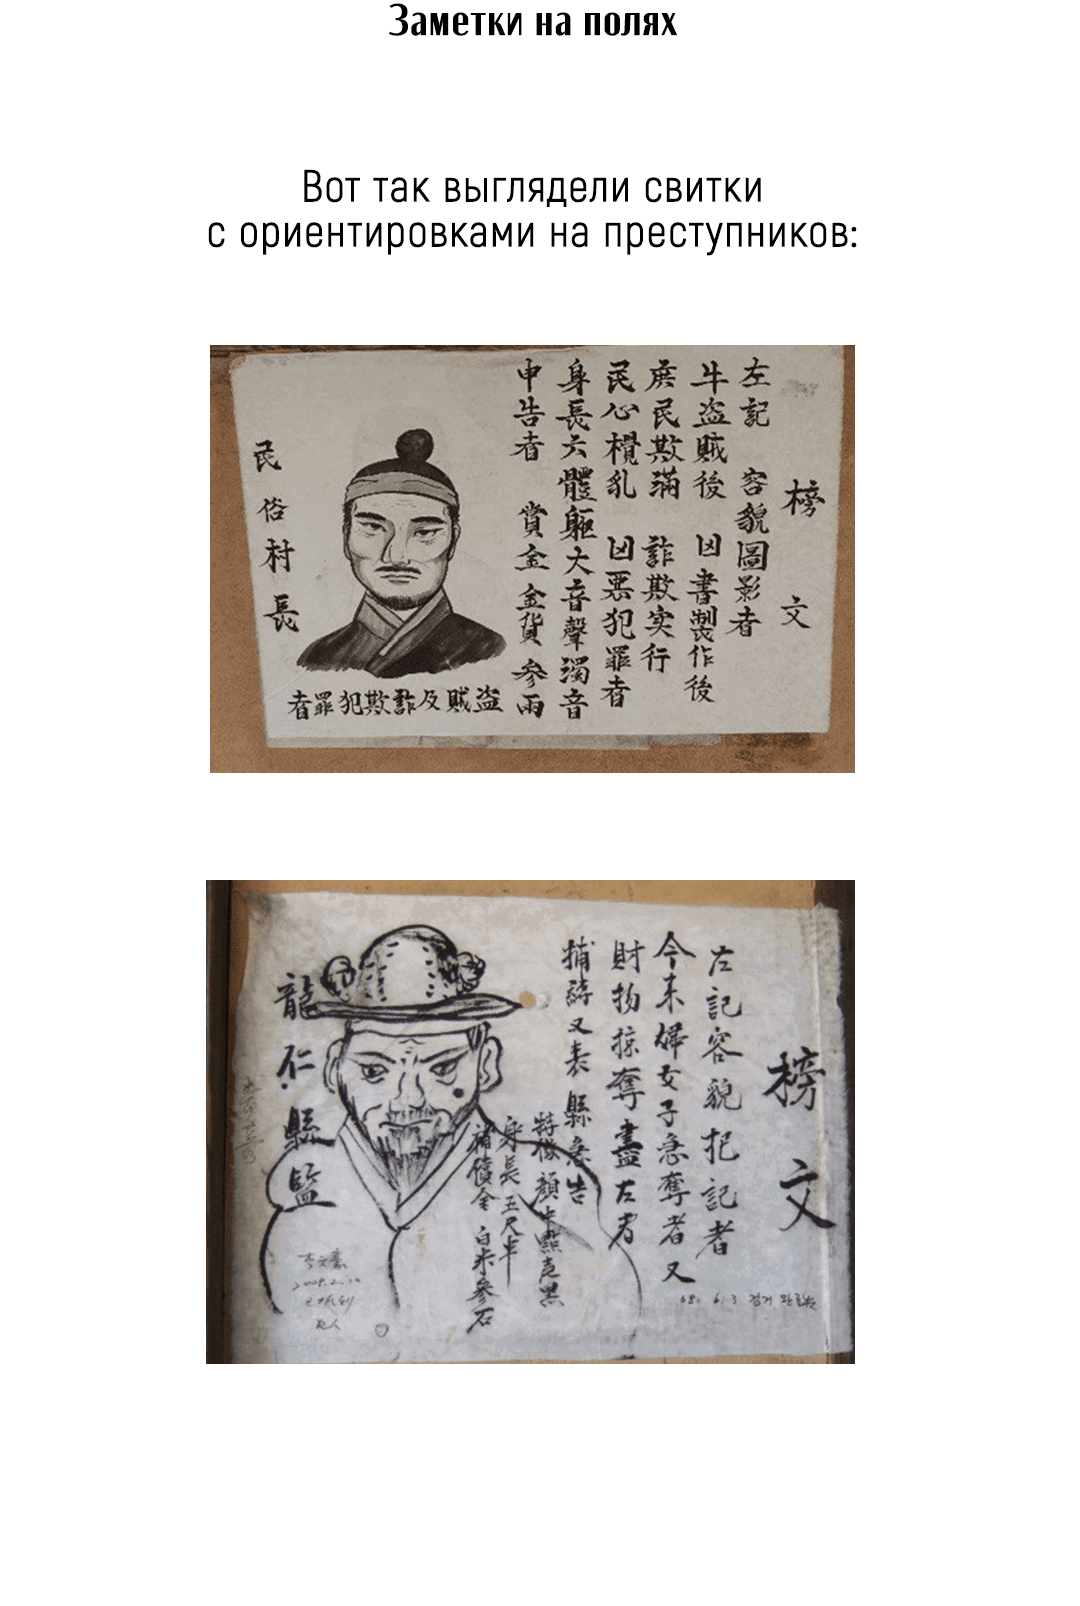 Заметки на полях
Вот так выглядели свитки
с ориентировками на преступников:
榜文
左記 容貌圖影者
牛盗賊後 凶書製作後
庶民欺滿 詐欺实行
民心攪乱 凶悪犯罪者
身長六 體軀大音聲濁音
申告者 賞金 金貨 参兩
民俗村長
者罪犯欺詐及賊盗
榜文
左記容貌把記者
今末婦女子急奪者又
財物掠奪盡左者
捕 又表縣急告
特徵 顔 點 黑
身長 五尺半
補償金 白米参石
龍仁縣監